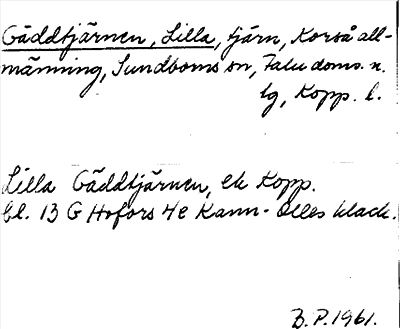 Gäddtjärnen, Lilla, tjärn, Korså all-
männing, Sundborns sn, Falu doms. n.
lg, Kopp. l.
Lilla Gäddtjärnen, ek Kopp.
bl. 13 G Hofors 4e Kann-Olles klack.
B.P. 1961.